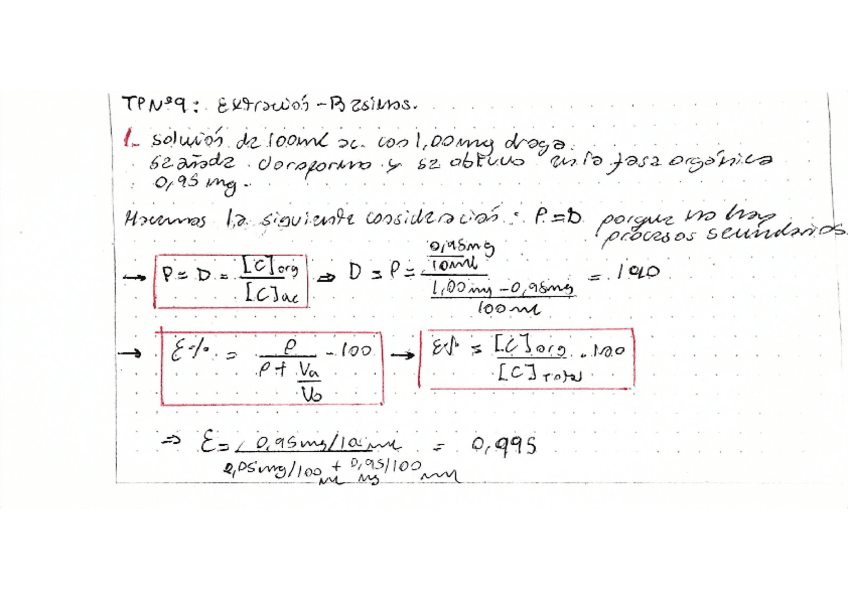 TP Nº9: Extracción - Resinas.
1- Solución de 100ml ac. con 1,00mg droga.
se añade cloroformo y se obtuvo en la fase orgánica
0,95 mg.
Hacemos la siguiente consideración: P=D porque no hay
procesos secundarios.
→ P = D = [C]org / [C]ac ⇒ D = P = (0,95mg / 10ml) / ((1,00mg - 0,95mg) / 100ml) = 190
→ E% = P / (P + Va/Vo) · 100 → E% = [C]org / [C]Total · 100
⇒ E = 0,95mg/10ml / (0,05mg/100ml + 0,95mg/100ml) = 0,995